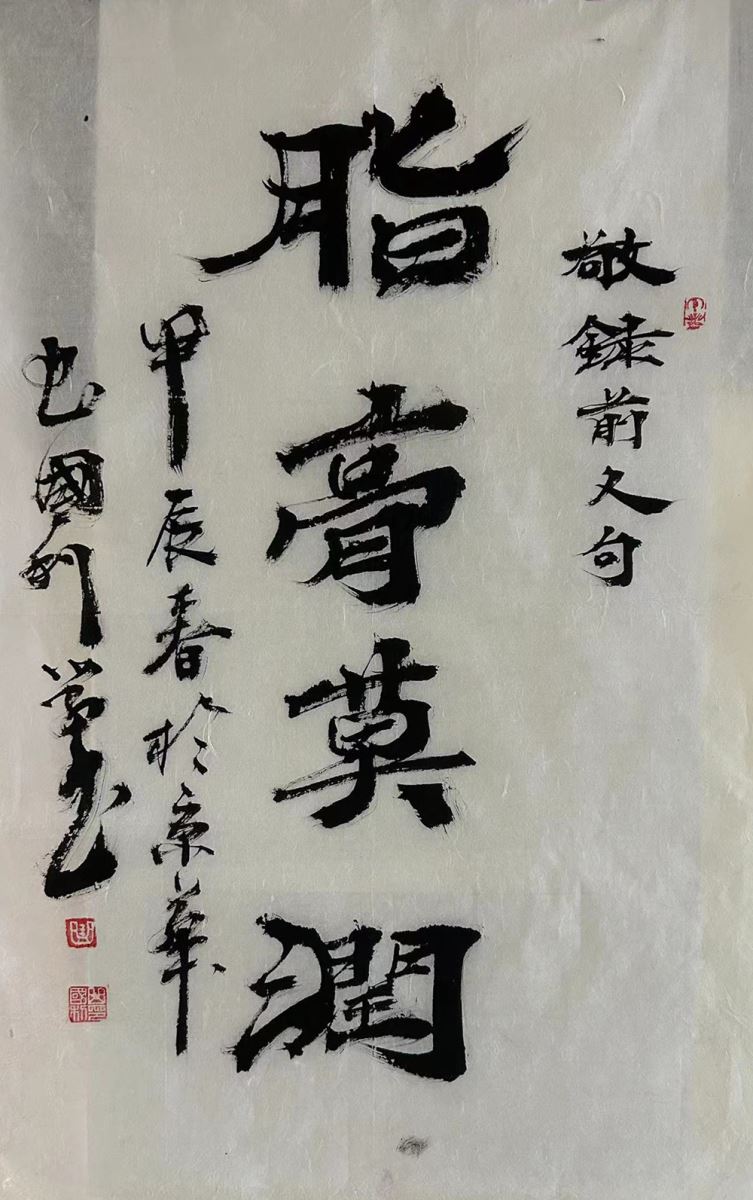 敬録前句
脂膏莫潤
甲辰春於京華
國利書